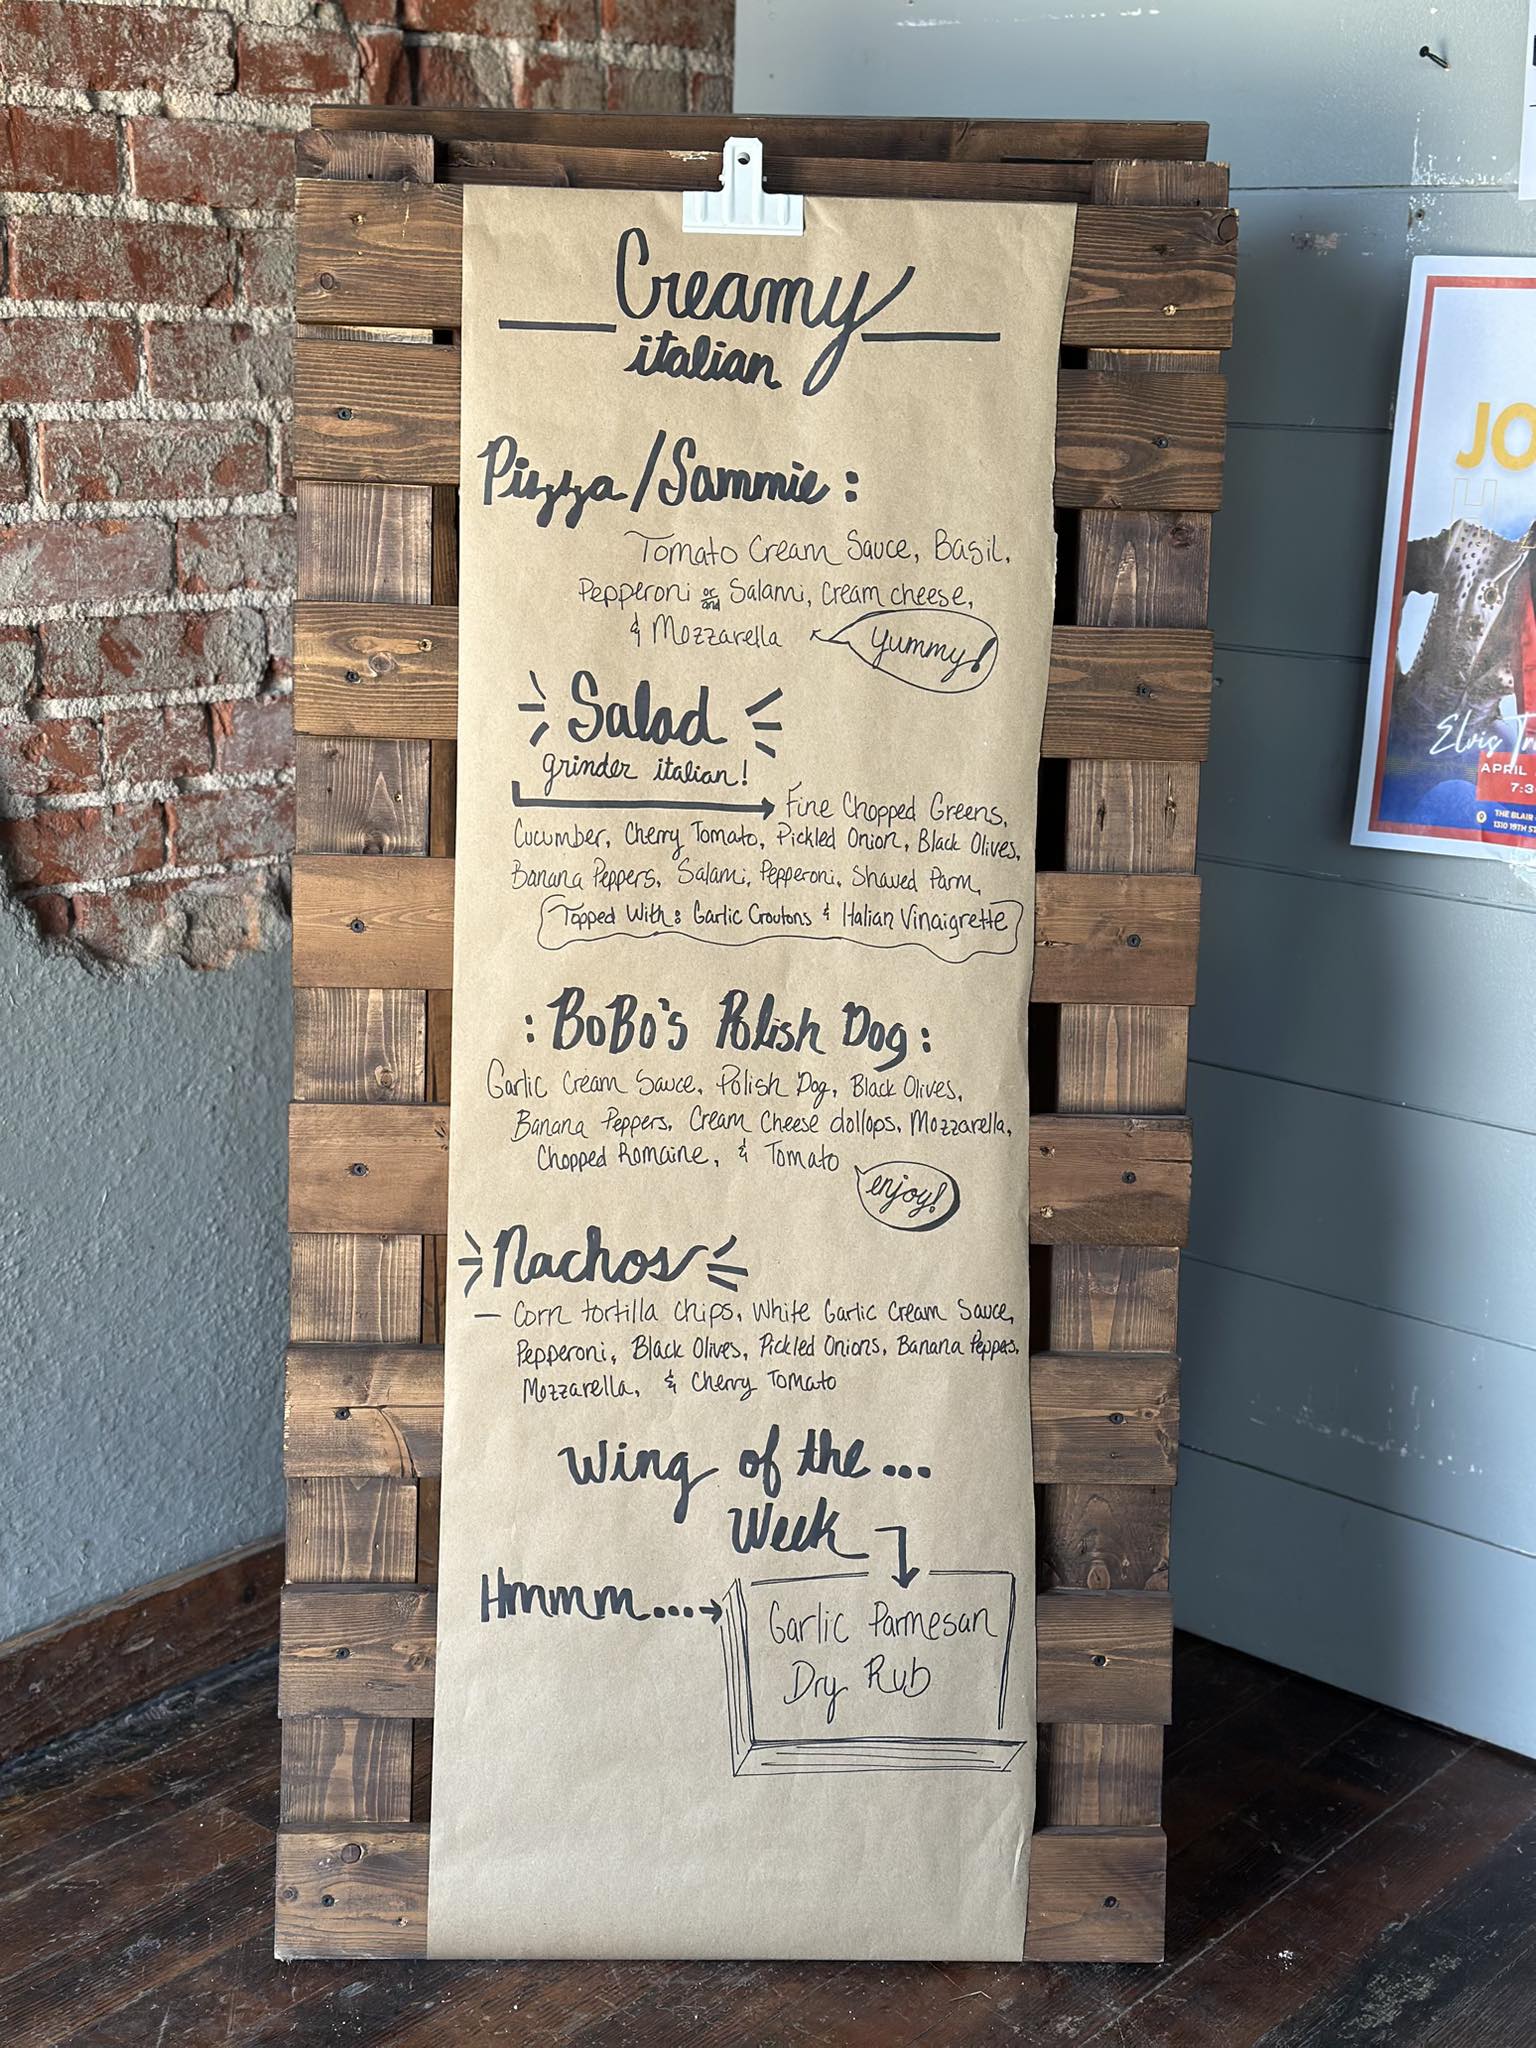 Creamy
italian
Pizza/Sammie:
Tomato Cream Sauce, Basil,
Pepperoni or and Salami, Cream cheese,
& Mozzarella
Yummy!
Salad
grinder italian!
Fine Chopped Greens,
Cucumber, Cherry Tomato, Pickled Onion, Black Olives,
Banana Peppers, Salami, Pepperoni, Shaved Parm,
Topped With: Garlic Croutons & Italian Vinaigrette
: BoBo's Polish Dog:
Garlic Cream Sauce, Polish Dog, Black Olives,
Banana Peppers, Cream Cheese dollops, Mozzarella,
Chopped Romaine, & Tomato
enjoy!
Nachos
– Corn tortilla chips, White Garlic Cream Sauce,
Pepperoni, Black Olives, Pickled Onions, Banana Peppers,
Mozzarella, & Cherry Tomato
Wing of the...
Week
Hmmm....
Garlic Parmesan
Dry Rub
JO
Elvis Tr
APRIL
7:3
THE BLAIR
1310 19TH ST